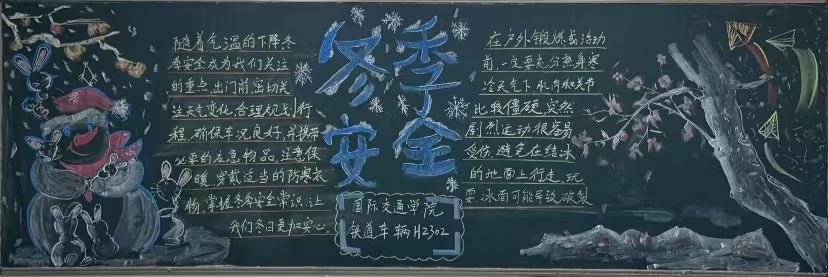 随着气温的下降冬
季安全成为我们关注
的重点,出门前,密切关
注天气变化,合理规划行
程,确保车况良好,并携带
必要的应急物品,注意保
暖,穿戴适当的防寒衣
物,掌握冬季安全常识,让
我们冬日更加安心。
冬季
安全
国际交通学院
铁道车辆H2302
在户外锻炼或活动
前,一定要充分热身寒
冷天气下,肌肉和关节
比较僵硬,突然
剧烈运动很容易
受伤,避免在结冰
的地面上行走,玩
耍,冰面可能导致破裂